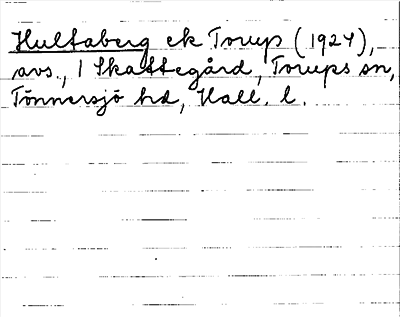 Hultaberg ek Torup (1924),
avs., 1 Skattegård, Torups sn,
Tönnersjö hd, Hall. l.